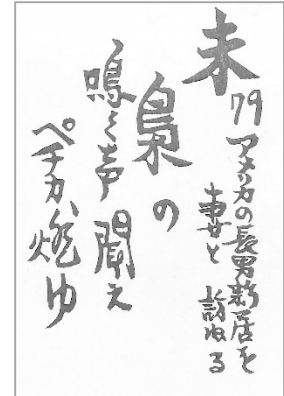 未
79 アメリカの長男新居を
妻と訪ねる
梟の
鳴く声聞え
ペチカ燃ゆ